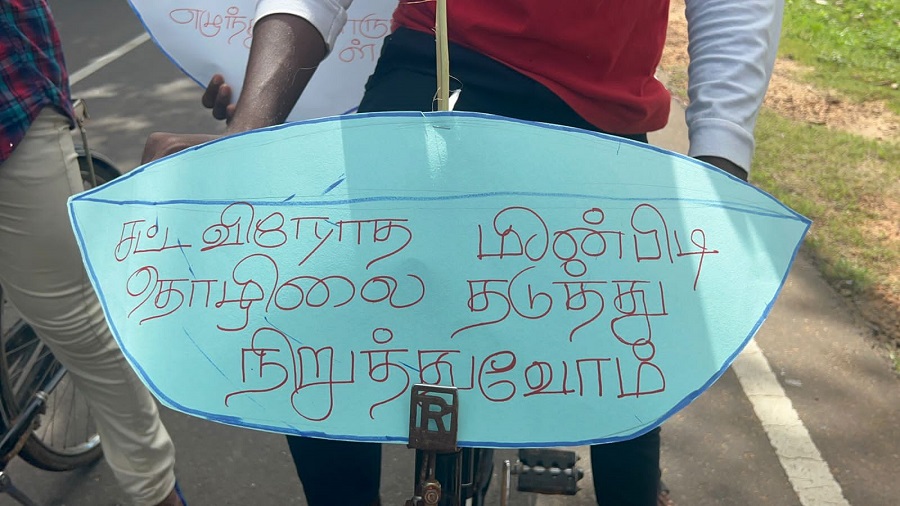 எழுந்
சட்ட விரோத மீன்பிடி
தொழிலை தடுத்து
நிறுத்துவோம்
R